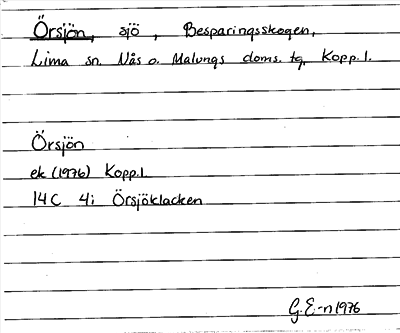 Örsjön, sjö, Besparingsskogen,
Lima sn. Nås o. Malungs doms. tg. Kopp. l.
Örsjön
ek (1976) Kopp. l.
14 C 4i Örsjöklacken
G.E-n 1976